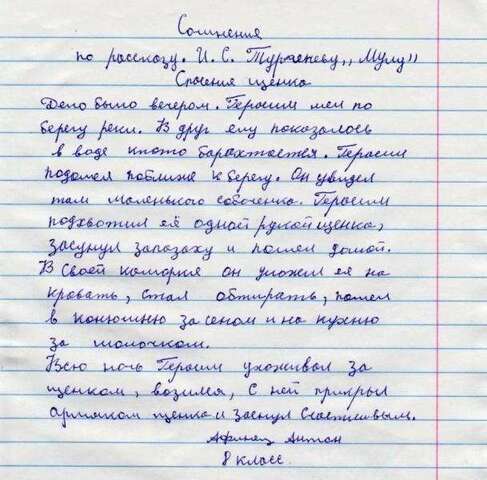 Сочинения
по рассказу. И. С. Тургеневу „Муму"
Спасения щенка
Дело было вечером. Герасим шел по
берегу реки. В друг ему показалось
в воде кто-то барахтается. Герасим
подошел поближе к берегу. Он увидел
там маленького собаченка. Герасим
подхватил её одной рукой щенка,
засунул запазаху и пошел домой.
В своей каморке он уложил ея на
кровать, стал обтирать, пошел
в конюшню за сеном и на кухню
за молочком.
Всю ночь Герасим ухоживал за
щенком, возился, с ней прикрыл
армяком щенка и заснул счастливым.
Антон
8 класс.